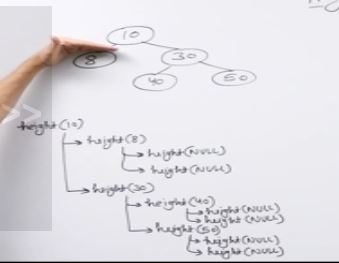 10
8 30
40 50
height(10)
height(8)
height(NULL)
height(NULL)
height(30)
height(40)
height(NULL)
height(NULL)
height(50)
height(NULL)
height(NULL)